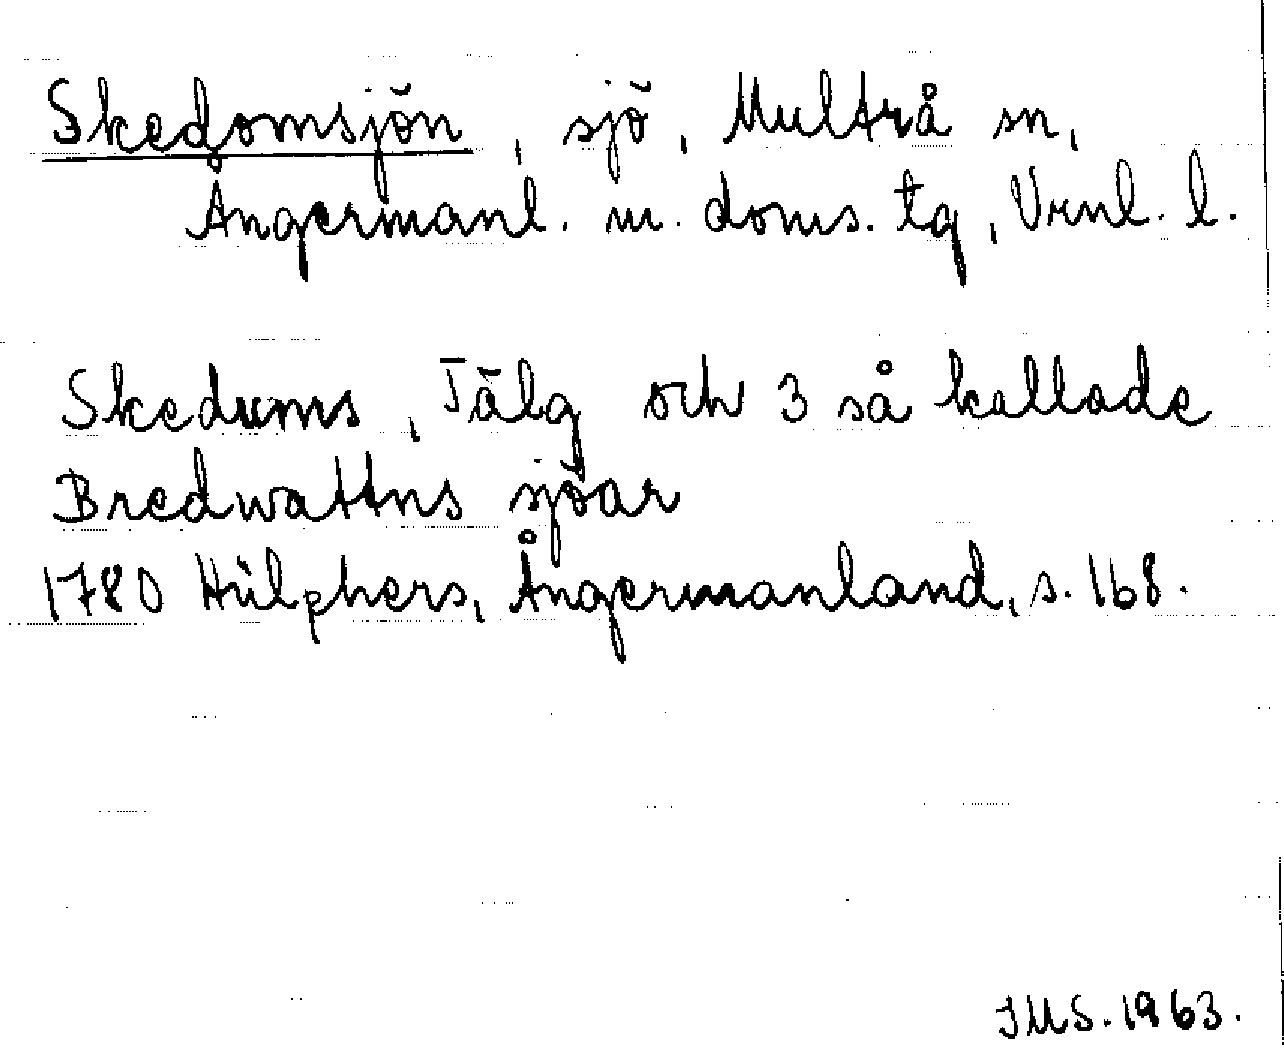 Skedomsjön, sjö, Multrå sn,
Ångermanl. m. doms. tg, Vrnl. l.
Skedums, Tälg och 3 så kallade
Bredwattns sjöar
1780 Hülphers, Ångermanland, s. 168.
JMS. 1963.